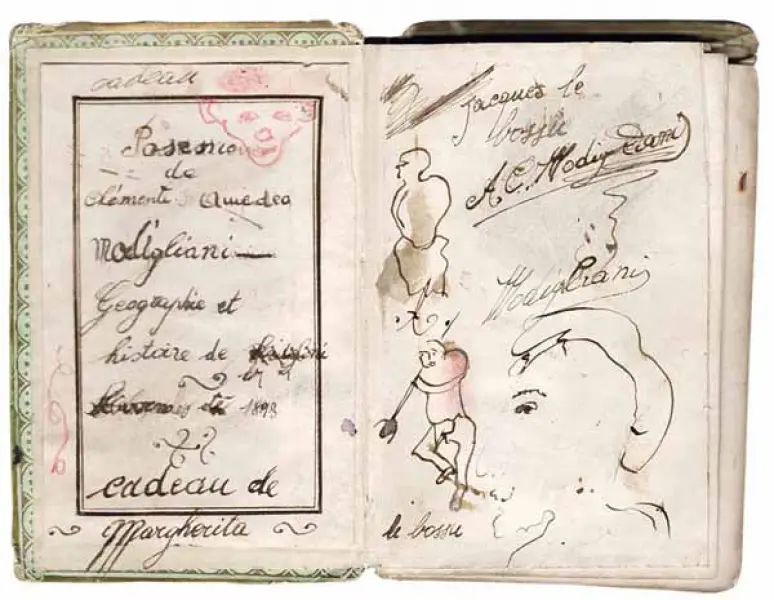 cadeau
de
Clémente Amedeo
Modigliani
Geographie et
histoire de
1893
cadeau de
Margherita
Jacques le
bossu
A. C. Modigliani
Modigliani
le bossu